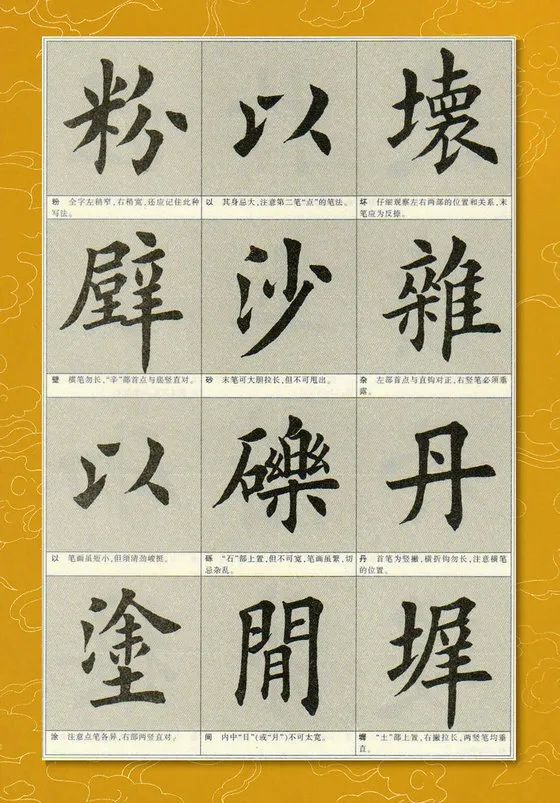 壞
坏 仔细观察左右两部的位置和关系,末
笔应为反捺。
雜
杂 左部首点与直钩对正,右竖笔必须垂
露。
丹
丹 首笔为竖撇,横折钩勿长,注意横笔
的位置。
墀
墀 “土”部上置,右撇拉长,两竖笔均垂
直。
以
以 其身忌大,注意第二笔“点”的笔法。
沙
砂 末笔可大胆拉长,但不可甩出。
礫
砾 “石”部上置,但不可宽,笔画虽繁,切
忌杂乱。
間
间 内中“日”(或“月”)不可太宽。
粉
粉 全字左稍窄,右稍宽,还应记住此种
写法。
壁
壁 横笔勿长,“辛”部首点与底竖直对。
以
以 笔画虽短小,但须清劲峻挺。
塗
涂 注意点笔各异,右部两竖直对。